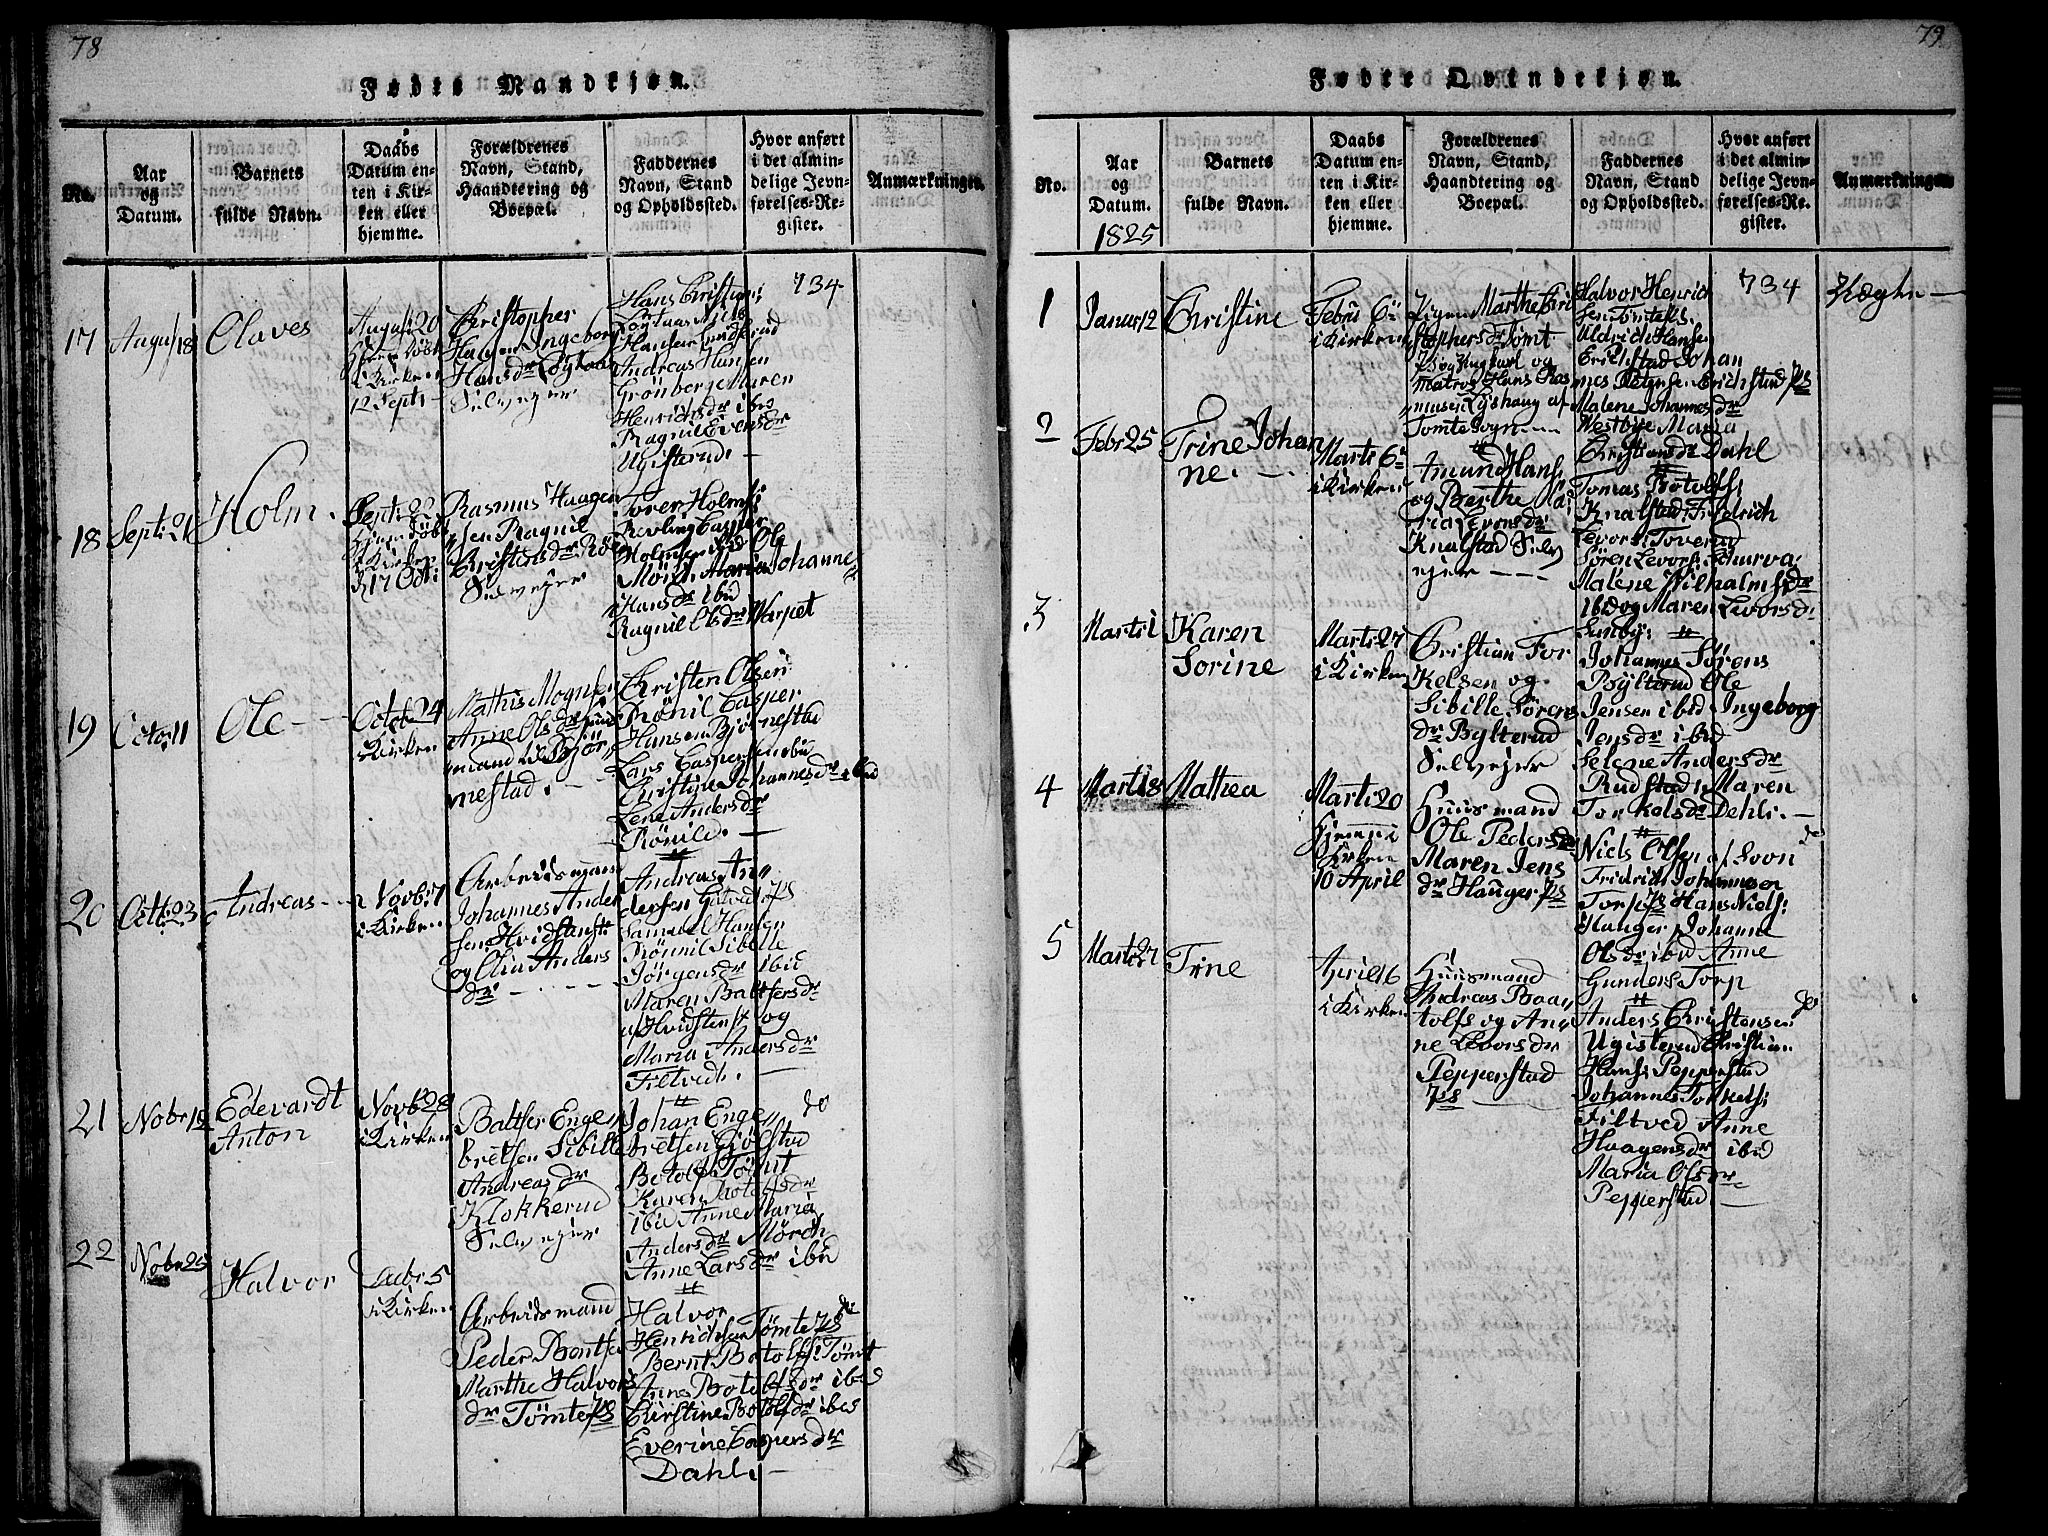 78
Fødte Mandkjøn.
No.
Aar
og
Datum.
Barnets
fulde Navn.
Daabs
Datum en-
ten i Kir-
ken eller
hjemme.
Forældrenes
Navn, Stand,
Haandtering og
Boepæl.
Faddernes
Navn, Stand
og Opholdssted.
Hvor anført
i det almin-
delige Jevn-
førelses-Re-
gister.
Anmærkninger.
17
August 18
Olaves
August 20
Hjemdøbt
i Kirken
12 Sept:
Christopher
Halvorsen Ingeborg
Hansdr
Selvejer
Hans Christians:
Hansen
Andreas Hansen
Grönberg Maren
Henrichsdr ibid
Ragnil Evensdr
Ugisterud.
734
18
Sept: 21
Holm.
Sept: 22
Hjemdöbt
i Kirken
d 17 Oct:
Rasmus Haagen
sen Ragnil
Christensdr Röed
Selvejer
Torer Holmss:
Revling Casper
Holmsen ibid Ole
Mörch Maria Johanne
Hansdr ibid
Ragnil Olsdr Warpet
19
Octo: 11
Ole
Octob: 24
i Kirken
Mathis Mogensen
Anne Olsdr Huus
mand Björ
nestad.
Christen Olsen
Rönil Casper
Hansen Björnestad
Lars Caspersen ibid
Christine Johannesdr ibid
Lene Andersdr
Rönild.
20
Octb: 23
Andreas
Novb: 7
i Kirken
Arbeidsmann
Johannes Ander
sen Hvidsteen
og Olia Anders
dr
Andreas An
dersen Filtved PS
Samuel Hansen
Rönnil Sibille
Jörgensdr ibid
Maren Baltsersdr
af Hvidsten og
Maria Andersdr
Filtvedt.
21
Nobr 12
Edevardt
Anton
Novb 28
i Kirken
Baltser Enge
bretsen Sibille
Andreasdr
Klokkerud
Selvejer
Johan Enge
bretsen Gjölstad
Botolf Tömt
Karen Botolfsdr
ibid Anne Maria
Andersdr Mörch
Anne Larsdr ibid
do
22
Nobr 25
Halvor
Decbr 5
i Kirken
Arbeidsmand
Peder Bentsen
Marthe Halvors
dr Tömte PS
Halvor
Henrichsen Tömte PS
Bernt Botolfs: Tömt
Anne Botolfsdr ibid
Kirstine Botolfsdr ibid
Everine Caspersdr
Dahl:
do
79
Fødte Qvindekjøn.
No.
Aar
og
Datum.
1825
Barnets
fulde Navn.
Daabs
Datum en-
ten i Kir-
ken eller
hjemme.
Forældrenes
Navn, Stand,
Haandtering og
Boepæl.
Faddernes
Navn, Stand
og Opholdssted.
Hvor anført
i det almin-
delige Jevn-
førelses-Re-
gister.
Anmærkninger.
1
Januar 12
Christine
Febru 6
i Kirken
Pigen Marthe Chri
stophersdr Tömt
og
Matros Hans Ras
musen af
Tomte Sogn
Halvor Henrich
sen Tömte PS.
Uldrich Hansen
Erichstad Johan
nes Petersen Erichstad PS
Malene Johannesdr
Westbye Maria
Christiansdr Dahl
734
Uægte
2
Febr 25
Trine Johan
ne.
Marti 6
i Kirken
Amund Hans:
og Berthe Ma
ria Evensdr
Knalstad Selv
ejer
Tomas Botolfs:
Knalstad Fridrich
Levors: Toverud
Sören Levors:
Malene Wilhalmsdr
ibid og Maren Levorsdr
Sundby:
3
Marti 1
Karen
Sorine
Marti 27
i Kirken
Christian Tor
kelsen og
Sibille Sörens
dr Bylterud
Selvejer
Johannes Sörens
Bylterud Ole
Jensen ibid Ingeborg
Jensdr ibid
Selene Andersdr
Rudstad: Maren
Torkelsdr Dehli.
4
Marti 8
Mathea
Marti 20
Hjemme i
Kirken
10 April
Huusmand
Ole Peders
Maren Jens
dr Hauger PS
Niels Olsen af Soon
Fridrich Johannesen
Torp PS Hans Niels:
Hauger Johanne
Olsdr ibid Anne
Gunders Torp
do
5
Marti 27
Trine
April 16
i Kirken
Huusmand
Andreas Baa
tolfs og An
ne Levorsdr
Pepperstad
PS
Anders Christensen
Ugisterud Christian
Hans: Pepperstad
Johannes Torkels:
Filtved Anne
Haagensdr ibid
Maria Olsdr
Pepperstad
do